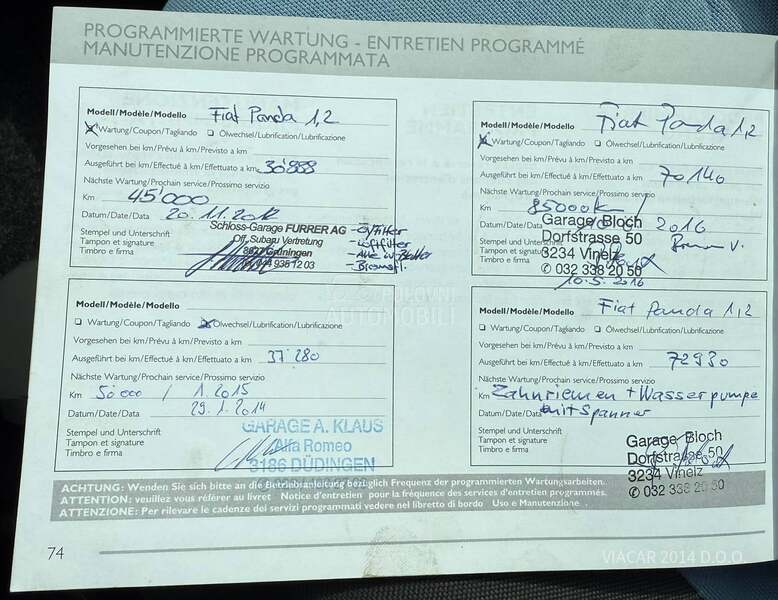 PROGRAMMIERTE WARTUNG - ENTRETIEN PROGRAMMÉ
MANUTENZIONE PROGRAMMATA
Modell/Modèle/Modello Fiat Panda 1,2
Wartung/Coupon/Tagliando Ölwechsel/Lubrification/Lubrificazione
Vorgesehen bei km/Prévu à km/Previsto a km
Ausgeführt bei km/Effectué à km/Effettuato a km 30'888
Nächste Wartung/Prochain service/Prossimo servizio
Km 45'000
Datum/Date/Data 20.11.2012
Stempel und Unterschrift
Tampon et signature
Timbro e firma
Schloss-Garage FURRER AG
Off. Subaru Vertretung
8627 Grüningen
935 12 03
- Ölfilter
- Luftfilter
Modell/Modèle/Modello Fiat Panda 1,2
Wartung/Coupon/Tagliando Ölwechsel/Lubrification/Lubrificazione
Vorgesehen bei km/Prévu à km/Previsto a km
Ausgeführt bei km/Effectué à km/Effettuato a km 70140
Nächste Wartung/Prochain service/Prossimo servizio
Km 85000km
Datum/Date/Data 2016
Stempel und Unterschrift
Tampon et signature
Timbro e firma
Garage Bloch
Dorfstrasse 50
3234 Vinelz
✆ 032 338 20 50
10.5.2016
Modell/Modèle/Modello
Wartung/Coupon/Tagliando Ölwechsel/Lubrification/Lubrificazione
Vorgesehen bei km/Prévu à km/Previsto a km
Ausgeführt bei km/Effectué à km/Effettuato a km 37 280
Nächste Wartung/Prochain service/Prossimo servizio
Km 50 000 / 1.2015
Datum/Date/Data 29.1.2014
Stempel und Unterschrift
Tampon et signature
Timbro e firma
GARAGE A. KLAUS
Alfa Romeo
3186 DÜDINGEN
Modell/Modèle/Modello Fiat Panda 1,2
Wartung/Coupon/Tagliando Ölwechsel/Lubrification/Lubrificazione
Vorgesehen bei km/Prévu à km/Previsto a km
Ausgeführt bei km/Effectué à km/Effettuato a km 72930
Nächste Wartung/Prochain service/Prossimo servizio
Km Zahnriemen + Wasserpumpe
Datum/Date/Data mit Spanner
Stempel und Unterschrift
Tampon et signature
Timbro e firma
Garage Bloch
Dorfstrasse 50
3234 Vinelz
✆ 032 338 20 50
POLOVNI
AUTOMOBILI
ACHTUNG: Wenden Sie sich bitte an die Betriebsanleitung bezüglich Frequenz der programmierten Wartungsarbeiten.
ATTENTION: veuillez vous référer au livret Notice d'entretien pour la fréquence des services d'entretien programmés.
ATTENZIONE: Per rilevare le cadenze dei servizi programmati vedere nel libretto di bordo Uso e Manutenzione .
74
VIACAR 2014 D.O.O.